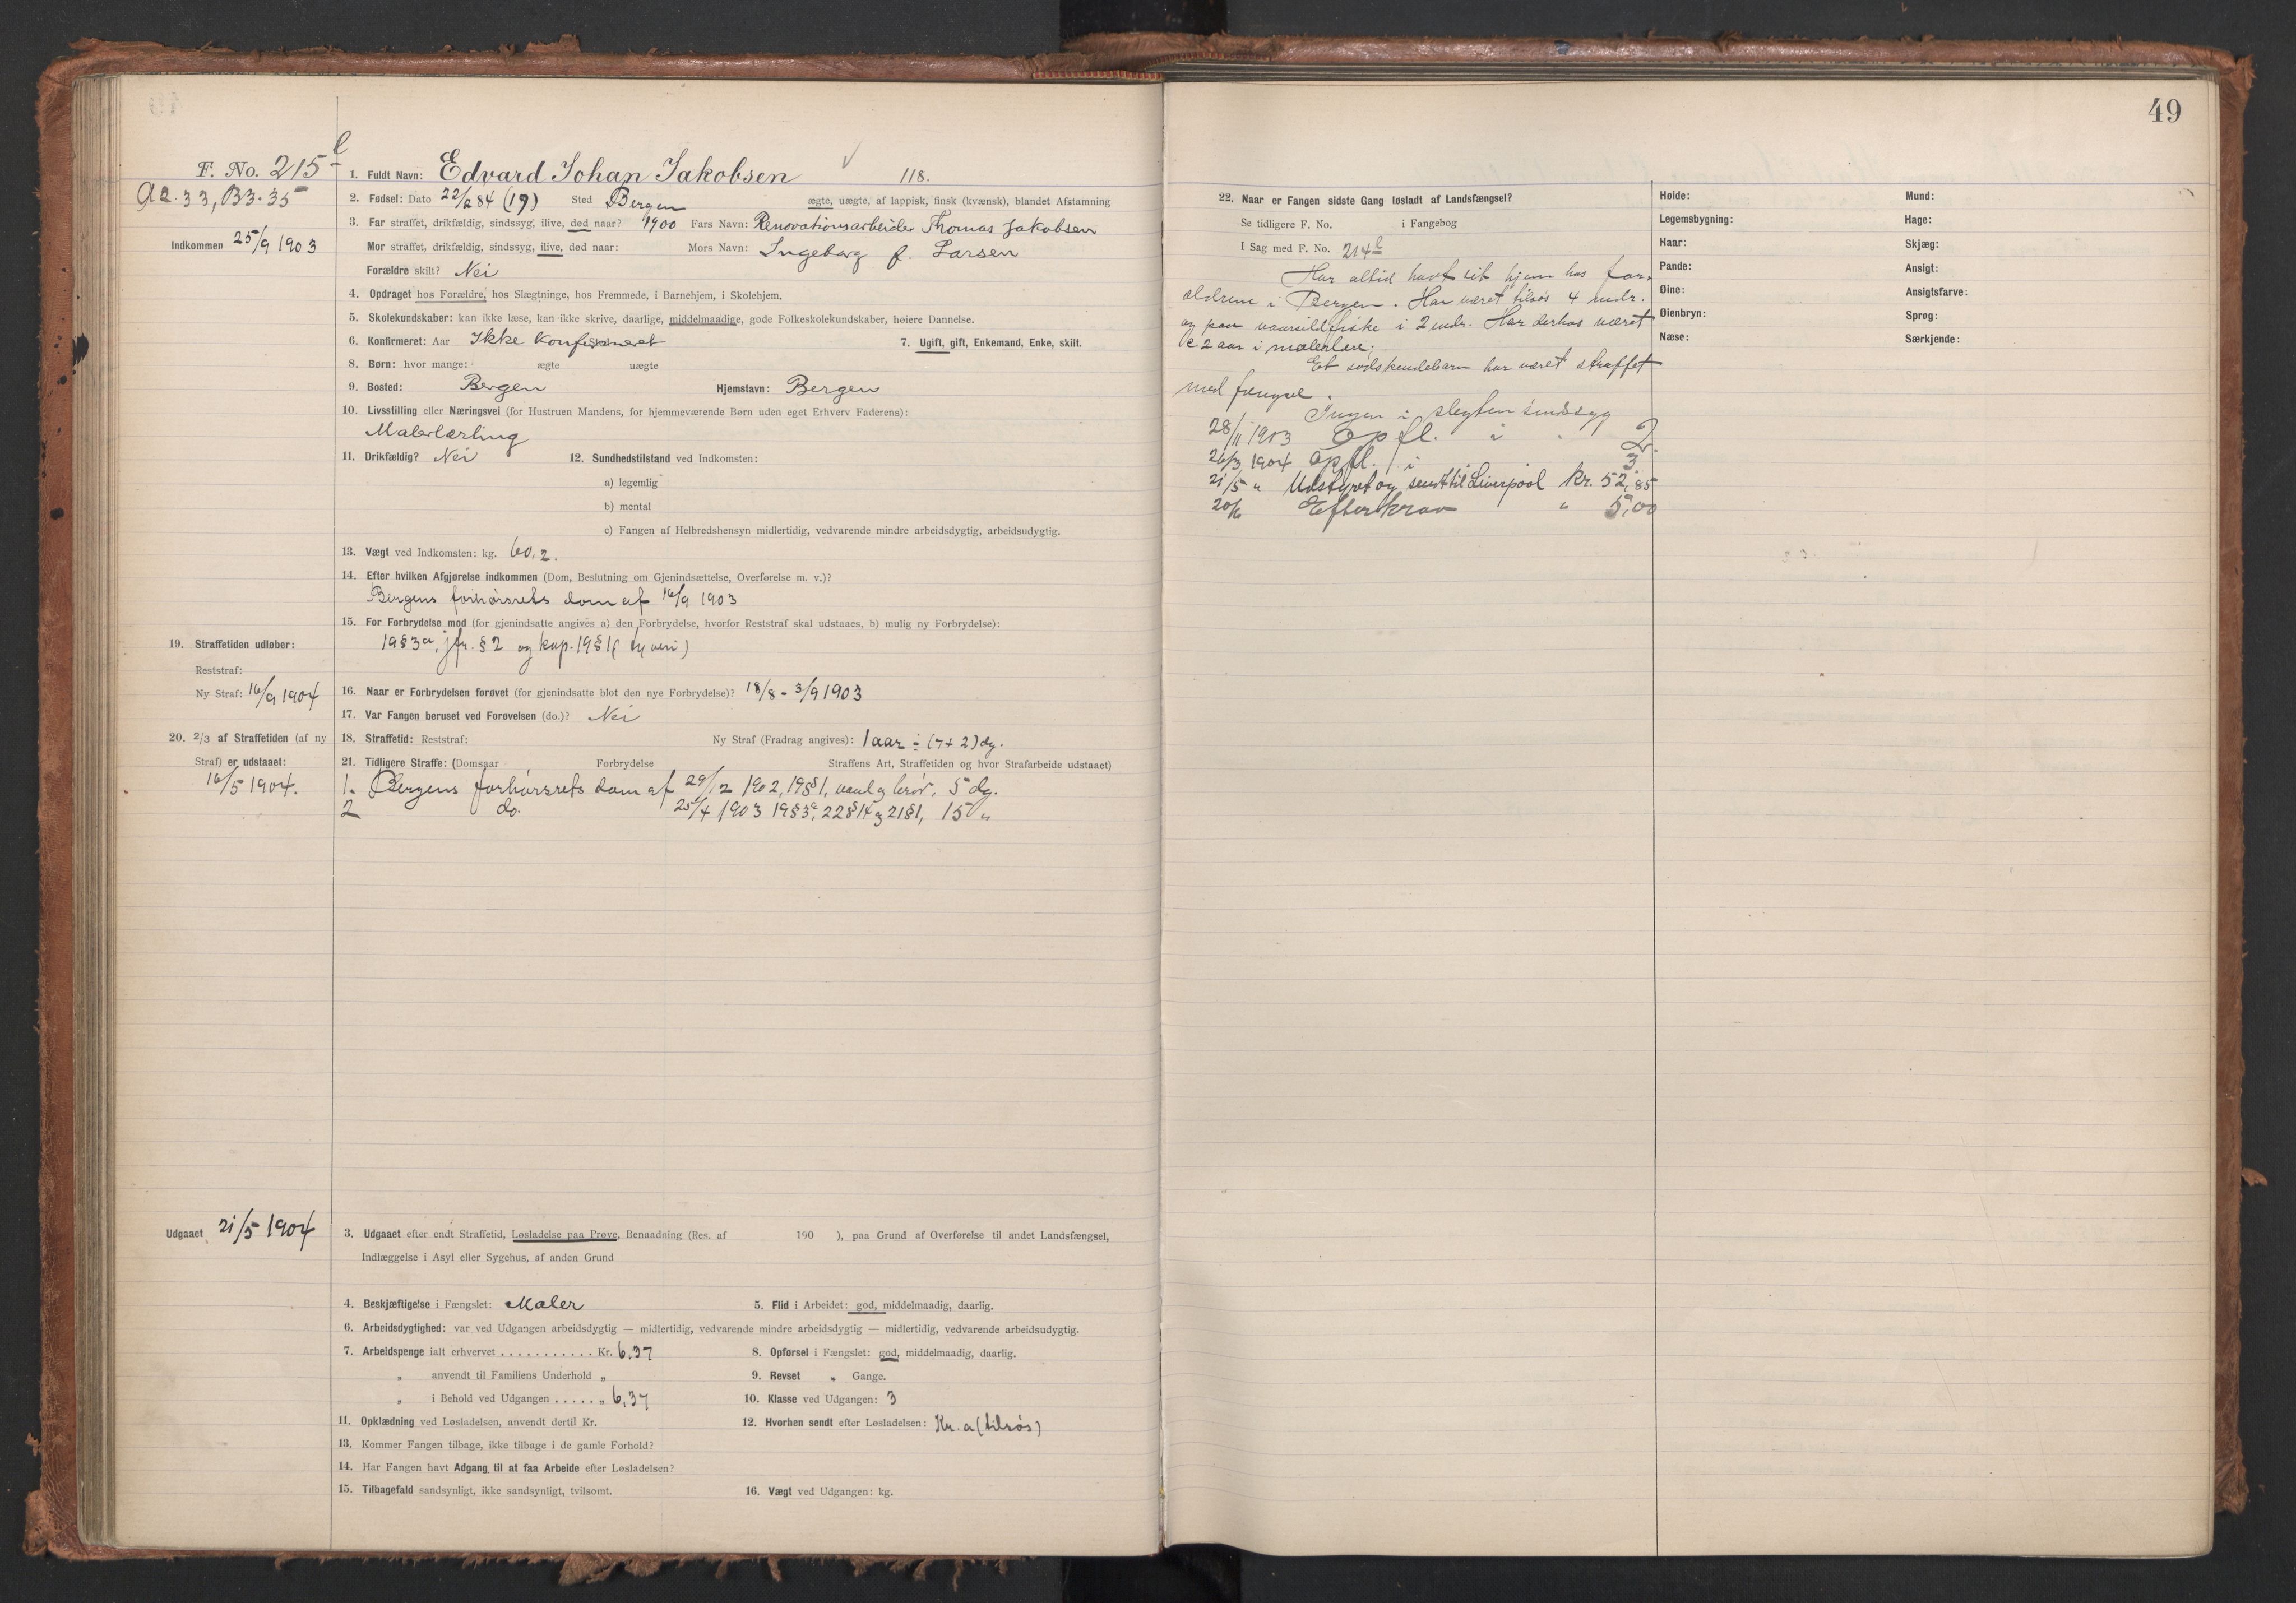 49
F. No. 215 l
Aa. 33, B3. 35
Indkommen 25/9 1903
1. Fuldt Navn: Edvard Johan Jakobsen 118.
2. Fødsel: Dato 22/2 84 (19) Sted Bergen ægte, uægte, af lappisk, finsk (kvænsk), blandet Afstamning
3. Far straffet, drikfældig, sindssyg, ilive, død naar? 1900 Fars Navn: Renovationsarbeider Thomas Jakobsen
Mor straffet, drikfældig, sindssyg, ilive, død naar: Mors Navn: Ingeborg f. Larsen
Forældre skilt? Nei
4. Opdraget hos Forældre, hos Slægtninge, hos Fremmede, i Barnehjem, i Skolehjem.
5. Skolekundskaber: kan ikke læse, kan ikke skrive, daarlige, middelmaadige, gode Folkeskolekundskaber, høiere Dannelse.
6. Konfirmeret: Aar Ikke konfirmeret 7. Ugift, gift, Enkemand, Enke, skilt.
8. Børn: hvor mange: ægte uægte
9. Bosted: Bergen Hjemstavn: Bergen
10. Livsstilling eller Næringsvei (for Hustruen Mandens, for hjemmeværende Børn uden eget Erhverv Faderens):
Malerlærling
11. Drikfældig? Nei 12. Sundhedstilstand ved Indkomsten:
a) legemlig
b) mental
c) Fangen af Helbredshensyn midlertidig, vedvarende mindre arbeidsdygtig, arbeidsudygtig.
13. Vægt ved Indkomsten: kg. 60,2.
14. Efter hvilken Afgjørelse indkommen (Dom, Beslutning om Gjenindsættelse, Overførelse m. v.)?
Bergens forhørsrets dom af 16/9 1903
15. For Forbrydelse mod (for gjenindsatte angives a) den Forbrydelse, hvorfor Reststraf skal udstaaes, b) mulig ny Forbrydelse):
19 § 3a, jfr. § 2 og kap. 19 § 1 (tyveri)
19. Straffetiden udløber:
Reststraf:
Ny Straf: 16/9 1904
16. Naar er Forbrydelsen forøvet (for gjenindsatte blot den nye Forbrydelse)? 18/8 - 3/9 1903
17. Var Fangen beruset ved Forøvelsen (do.)? Nei
20. 2/3 af Straffetiden (af ny
Straf) er udstaaet:
16/5 1904.
18. Straffetid: Reststraf: Ny Straf (Fradrag angives): 1 aar ÷ (7 + 2) dg.
21. Tidligere Straffe: (Domsaar Forbrydelse Straffens Art, Straffetiden og hvor Strafarbeide udstaaet)
1. Bergens forhørsrets dom af 29/12 1902, 19 § 1, vand og brød, 5 dg.
2 do. 25/4 1903 19 § 3a, 22 § 14 og 21 § 1, 15 "
Udgaaet 21/5 1904
3. Udgaaet efter endt Straffetid, Løsladelse paa Prøve, Benaadning (Res. af 190 ), paa Grund af Overførelse til andet Landsfængsel,
Indlæggelse i Asyl eller Sygehus, af anden Grund
4. Beskjæftigelse i Fængslet: Maler 5. Flid i Arbeidet: god, middelmaadig, daarlig.
6. Arbeidsdygtighed: var ved Udgangen arbeidsdygtig — midlertidig, vedvarende mindre arbeidsdygtig — midlertidig, vedvarende arbeidsudygtig.
7. Arbeidspenge ialt erhvervet . . . . . . . . . . . Kr. 6,37 8. Opførsel i Fængslet: god, middelmaadig, daarlig.
" anvendt til Familiens Underhold " 9. Revset " Gange.
" i Behold ved Udgangen . . . . . " 6,37 10. Klasse ved Udgangen: 3
11. Opklædning ved Løsladelsen, anvendt dertil Kr. 12. Hvorhen sendt efter Løsladelsen: Kr. a (tilsøs)
13. Kommer Fangen tilbage, ikke tilbage i de gamle Forhold?
14. Har Fangen havt Adgang til at faa Arbeide efter Løsladelsen?
15. Tilbagefald sandsynligt, ikke sandsynligt, tvilsomt. 16. Vægt ved Udgangen: kg.
22. Naar er Fangen sidste Gang løsladt af Landsfængsel?
Se tidligere F. No. i Fangebog
I Sag med F. No. 214 l
Har altid havt sit hjem hos for-
ældrene i Bergen. Har været tilsøs 4 mdr.
og paa vaarsildfiske i 2 mdr. Har derhos været
c 2 aar i malerlære.
Et sødskendebarn har været straffet
med fængsel.
Ingen i slegten sindssyg
28/11 1903 Opfl. i " 2
26/3 1904 Opfl. i " 3
21/5 " Udstyret og sendt til Liverpool kr. 52,85
20/6 Efterkrav " 5,00
Høide: Mund:
Legemsbygning: Hage:
Haar: Skjæg:
Pande: Ansigt:
Øine: Ansigtsfarve:
Øienbryn: Sprog:
Næse: Særkjende: